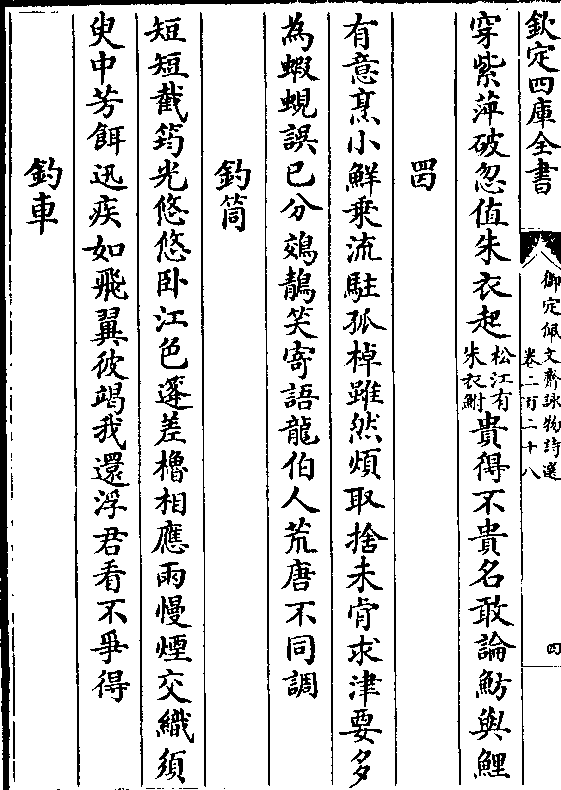 欽定四庫全書
御定佩文齋詠物詩選
卷二百二十八
四
穿紫萍破忽值朱衣起松江有朱衣鮒貴得不貴名敢論魴與鯉
四
有意烹小鮮乗流駐孤棹雖然煩取捨未肯求津要多
為蝦蜆誤已分䴔鶄笑寄語龍伯人荒唐不同調
釣筒
短短截筠光悠悠卧江色蓬差櫓相應雨慢煙交織須
臾中芳餌迅疾如飛翼彼竭我還浮君看不爭得
釣車